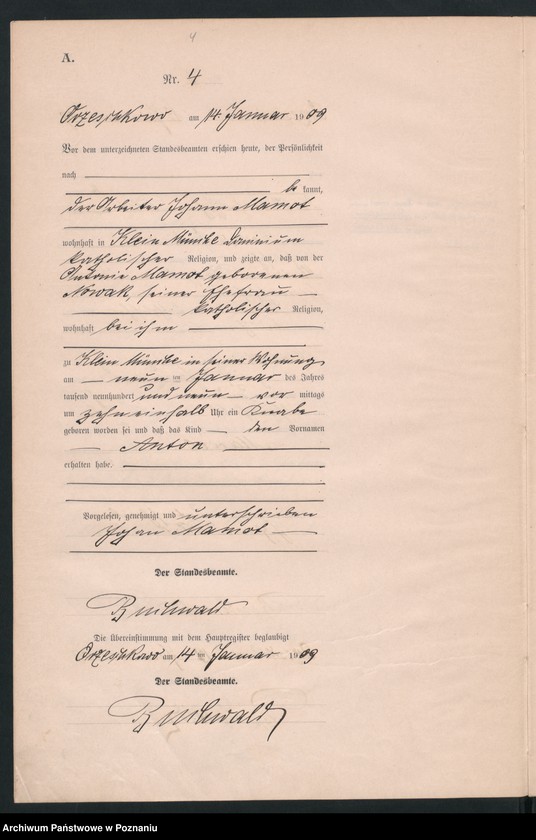 4
A.
Nr. 4
Orzeschkowo am 14. Januar 1909
Vor dem unterzeichneten Standesbeamten erschien heute, der Persönlichkeit
nach
be kannt,
der Arbeiter Johann Mamot
wohnhaft in Klein Münche Dominium
katholischer Religion, und zeigte an, daß von der
Antonie Mamot geborenen
Nowak, seiner Ehefrau
katholischer Religion,
wohnhaft bei ihm
zu Klein Münche in seiner Wohnung
am neun ten Januar des Jahres
tausend neunhundert und neun vor mittags
um zehn einhalb Uhr ein Knabe
geboren worden sei und daß das Kind den Vornamen
Anton
erhalten habe.
Vorgelesen, genehmigt und unterschrieben
Johan Mamot
Der Standesbeamte.
Buchwald
Die Übereinstimmung mit dem Hauptregister beglaubigt
Orzeschkowo am 14 ten Januar 1909
Der Standesbeamte.
Buchwald
Archiwum Państwowe w Poznaniu